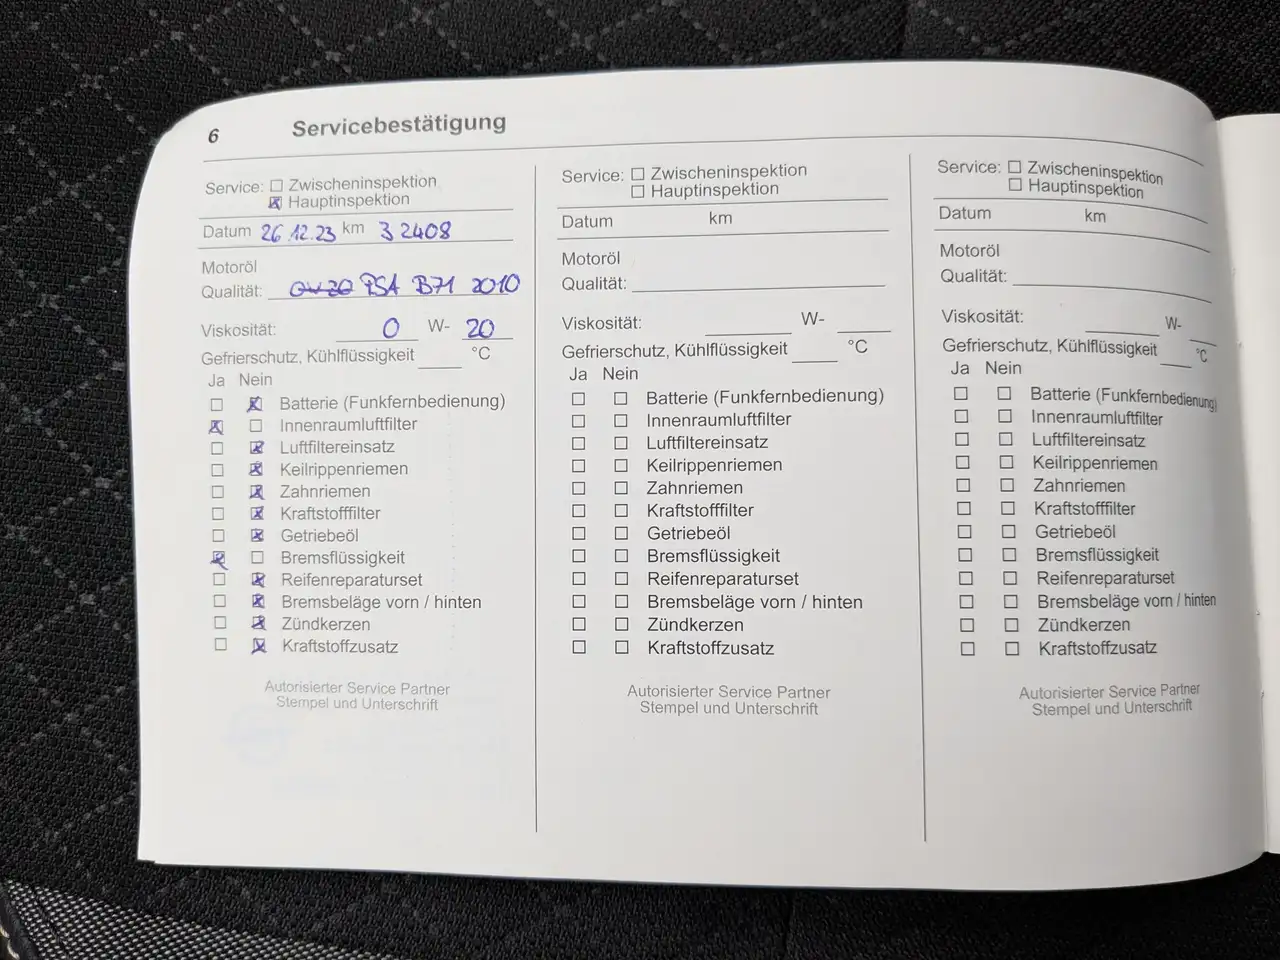 6 Servicebestätigung
Service: ☐ Zwischeninspektion
☒ Hauptinspektion
Datum 26.12.23 km 32408
Motoröl
Qualität: 0W20 PSA B71 2010
Viskosität: 0 W- 20
Gefrierschutz, Kühlflüssigkeit ____ °C
Ja Nein
☐ ☒ Batterie (Funkfernbedienung)
☒ ☐ Innenraumluftfilter
☐ ☒ Luftfiltereinsatz
☐ ☒ Keilrippenriemen
☐ ☒ Zahnriemen
☐ ☒ Kraftstofffilter
☐ ☒ Getriebeöl
☒ ☐ Bremsflüssigkeit
☐ ☒ Reifenreparaturset
☐ ☒ Bremsbeläge vorn / hinten
☐ ☒ Zündkerzen
☐ ☒ Kraftstoffzusatz
Autorisierter Service Partner
Stempel und Unterschrift
Service: ☐ Zwischeninspektion
☐ Hauptinspektion
Datum km
Motoröl
Qualität:
Viskosität: ____ W- ____
Gefrierschutz, Kühlflüssigkeit ____ °C
Ja Nein
☐ ☐ Batterie (Funkfernbedienung)
☐ ☐ Innenraumluftfilter
☐ ☐ Luftfiltereinsatz
☐ ☐ Keilrippenriemen
☐ ☐ Zahnriemen
☐ ☐ Kraftstofffilter
☐ ☐ Getriebeöl
☐ ☐ Bremsflüssigkeit
☐ ☐ Reifenreparaturset
☐ ☐ Bremsbeläge vorn / hinten
☐ ☐ Zündkerzen
☐ ☐ Kraftstoffzusatz
Autorisierter Service Partner
Stempel und Unterschrift
Service: ☐ Zwischeninspektion
☐ Hauptinspektion
Datum km
Motoröl
Qualität:
Viskosität: ____ W- ____
Gefrierschutz, Kühlflüssigkeit ____ °C
Ja Nein
☐ ☐ Batterie (Funkfernbedienung)
☐ ☐ Innenraumluftfilter
☐ ☐ Luftfiltereinsatz
☐ ☐ Keilrippenriemen
☐ ☐ Zahnriemen
☐ ☐ Kraftstofffilter
☐ ☐ Getriebeöl
☐ ☐ Bremsflüssigkeit
☐ ☐ Reifenreparaturset
☐ ☐ Bremsbeläge vorn / hinten
☐ ☐ Zündkerzen
☐ ☐ Kraftstoffzusatz
Autorisierter Service Partner
Stempel und Unterschrift